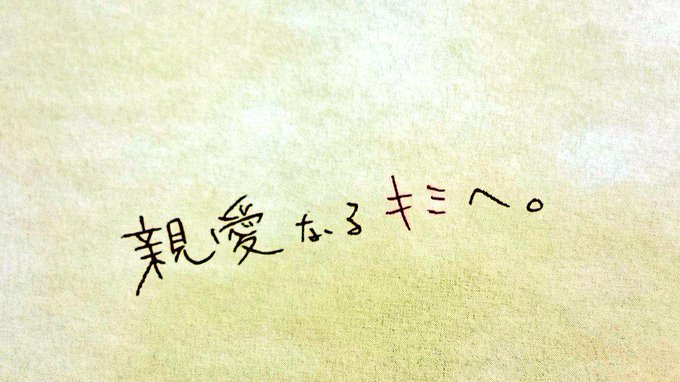 親愛なるキミへ。